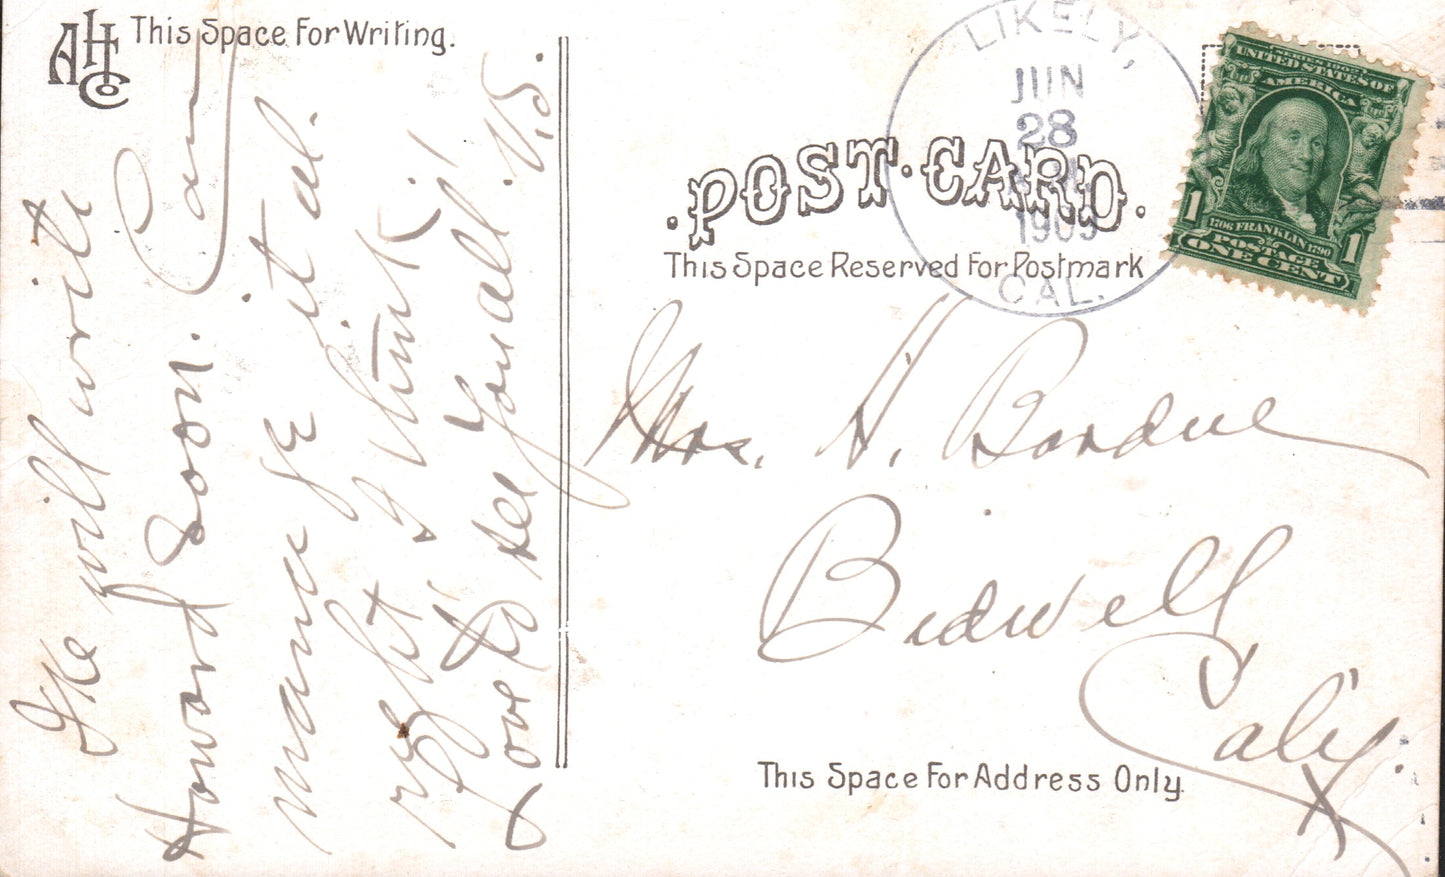 AHCo
This Space For Writing.
Ike will write
Howard soon. Can
manage it al.
right I think!
Love to see you all. V.S.
LIKELY,
JUN
28
1909
CAL.
POST CARD.
This Space Reserved For Postmark
SERIES 1902
UNITED STATES OF
AMERICA
1706 FRANKLIN 1790
POSTAGE
1 ONE CENT 1
Mrs. H. Bordue
Bidwell
Calif.
This Space For Address Only.